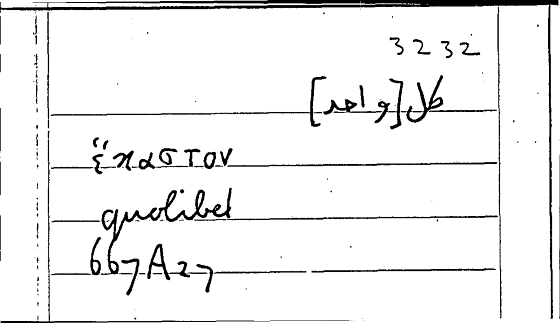 3232
كل [واحد]
ἕκαστον
quolibet
667A27